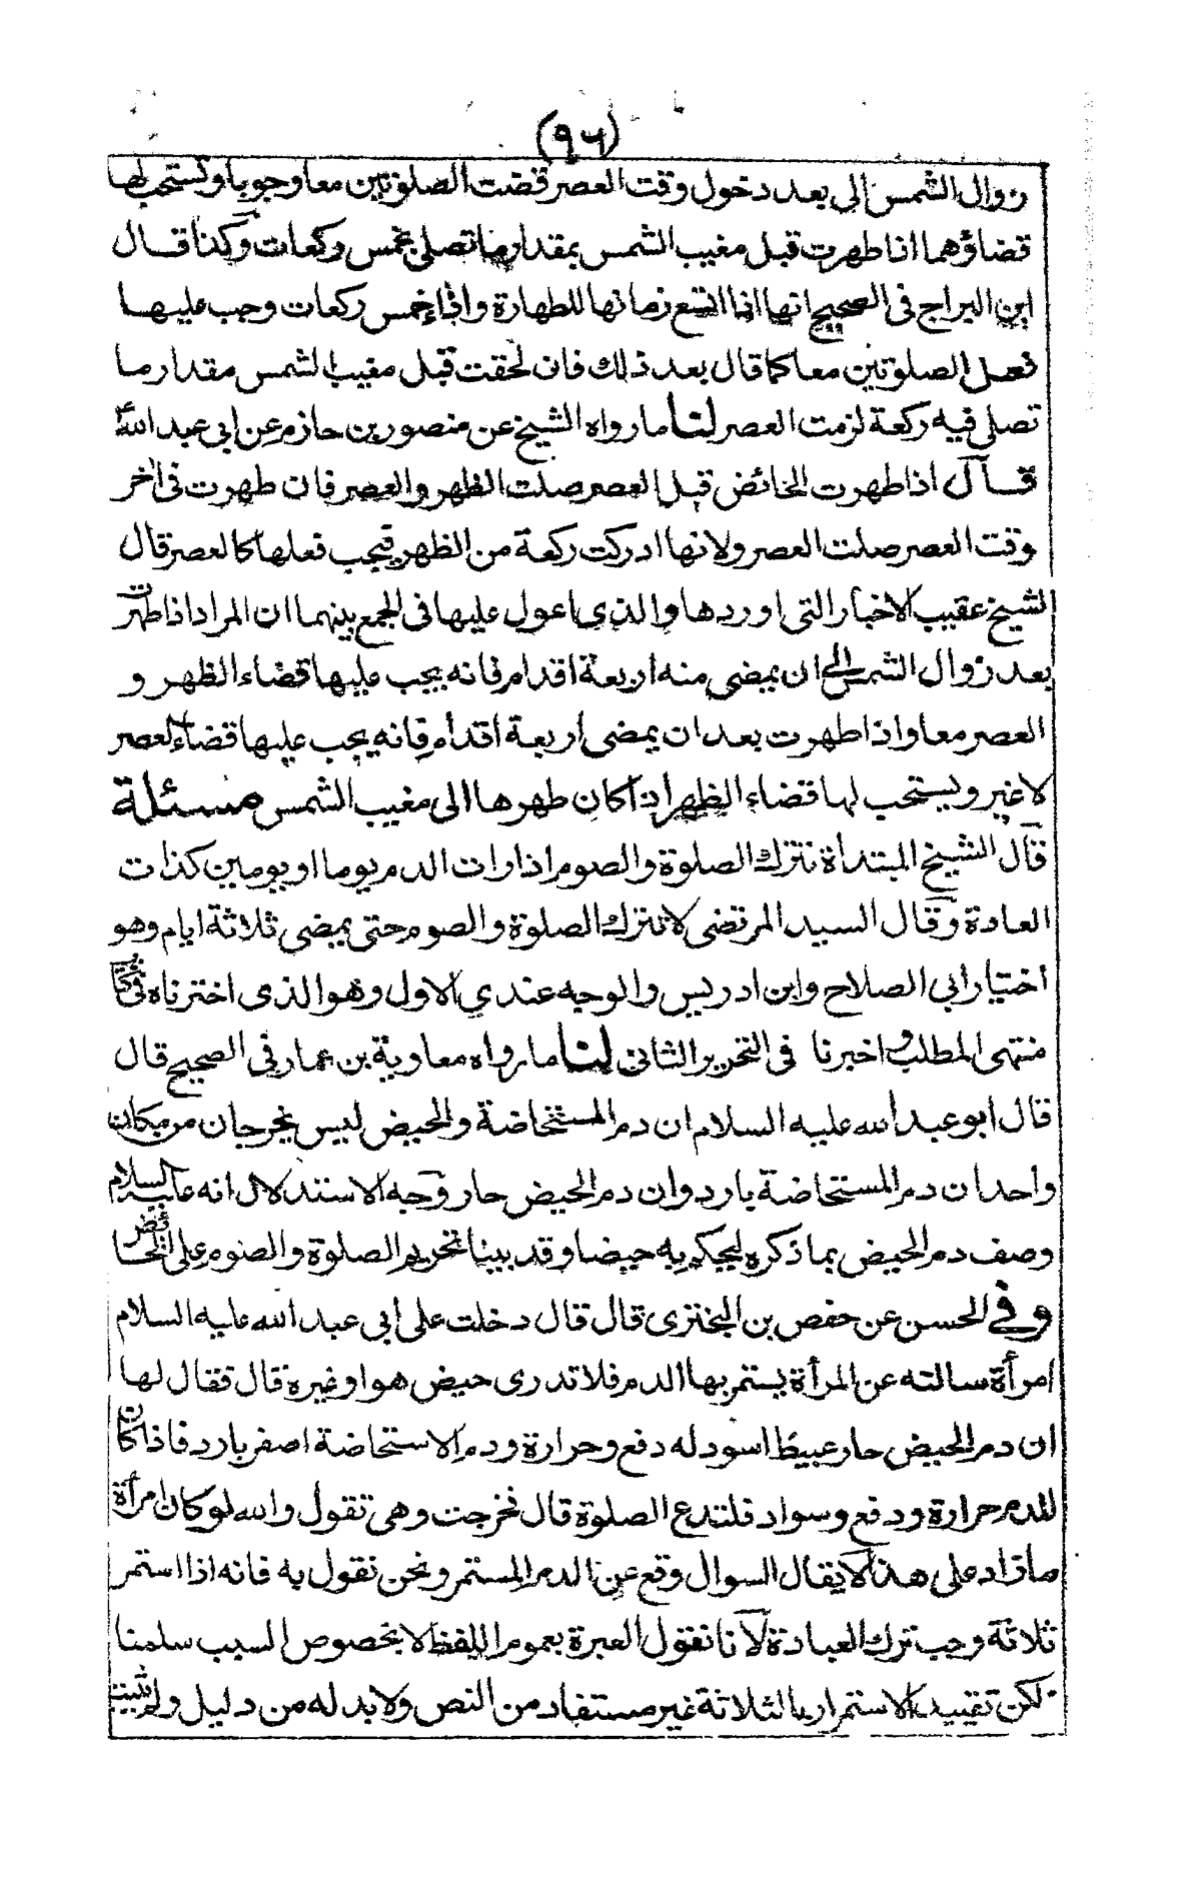 (٩٦)
زوال الشمس الى بعد دخول وقت العصر قضت الصلوتين معا وجوبا ويستحب لها
قضاؤهما اذا طهرت قبل مغيب الشمس بمقدار ما تصلى خمس ركعات وكذا قال
ابن البراج فى الصحيح انها اذا اتسع زمانها للطهارة واداء خمس ركعات وجب عليها
فعل الصلوتين معا كما قال بعد ذلك فان لحقت قبل مغيب الشمس مقدار ما
تصلى فيه ركعة لزمت العصر لنا ما رواه الشيخ عن منصور بن حازم عن ابى عبد الله ع
قال اذا طهرت الحائض قبل العصر صلت الظهر والعصر فان طهرت فى اخر
وقت العصر صلت العصر ولانها ادركت ركعة من الظهر فيجب فعلها كالعصر قال
الشيخ عقيب الاخبار التى اوردها والذى اعول عليها فى الجمع بينهما ان المراد اذا طهرت
بعد زوال الشمس الى ان يمضى منه اربعة اقدام فانه يجب عليها قضاء الظهر و
العصر معا واذا طهرت بعد ان يمضى اربعة اقدام فانه يجب عليها قضاء العصر
لا غير ويستحب لها قضاء الظهر اذا كان طهرها الى مغيب الشمس مسئلة
قال الشيخ المبتدأة تترك الصلوة والصوم اذا رات الدم يوما او يومين كذات
العادة وقال السيد المرتضى لا تترك الصلوة والصوم حتى يمضى ثلاثة ايام وهو
اختيار ابى الصلاح وابن ادريس والوجه عندي الاول وهو الذى اخترناه فى كتاب
منتهى المطلب واخبرنا فى التحرير الثانى لنا ما رواه معاوية بن عمار فى الصحيح قال
قال ابو عبد الله عليه السلام ان دم المستحاضة والحيض ليس يخرجان من مكان
واحد ان دم المستحاضة بارد وان دم الحيض حار وجه الاستدلال انه عليه السلام
وصف دم الحيض بما ذكره ليحكم به حيضا وقد بينا تحريم الصلوة والصوم على الحائض
وفي الحسن عن حفص بن البخترى قال قال دخلت على ابى عبد الله عليه السلام
امرأة سالته عن المرأة يستمر بها الدم فلا تدرى حيض هو او غيره قال فقال لها
ان دم الحيض حار عبيط اسود له دفع وحرارة ودم الاستحاضة اصفر بارد فاذا كان
للدم حرارة ودفع وسواد فلتدع الصلوة قال فخرجت وهى تقول والله لو كان امرأة
ما زاد على هذا لا يقال السوال وقع عن الدم المستمر ونحن نقول به فانه اذا استمر
ثلاثة وجب ترك العبادة لانا نقول العبرة بعموم اللفظ لا بخصوص السبب سلمنا
لكن تقييد الاستمرار بالثلاثة غير مستفاد من النص ولا بد له من دليل ولم يثبت